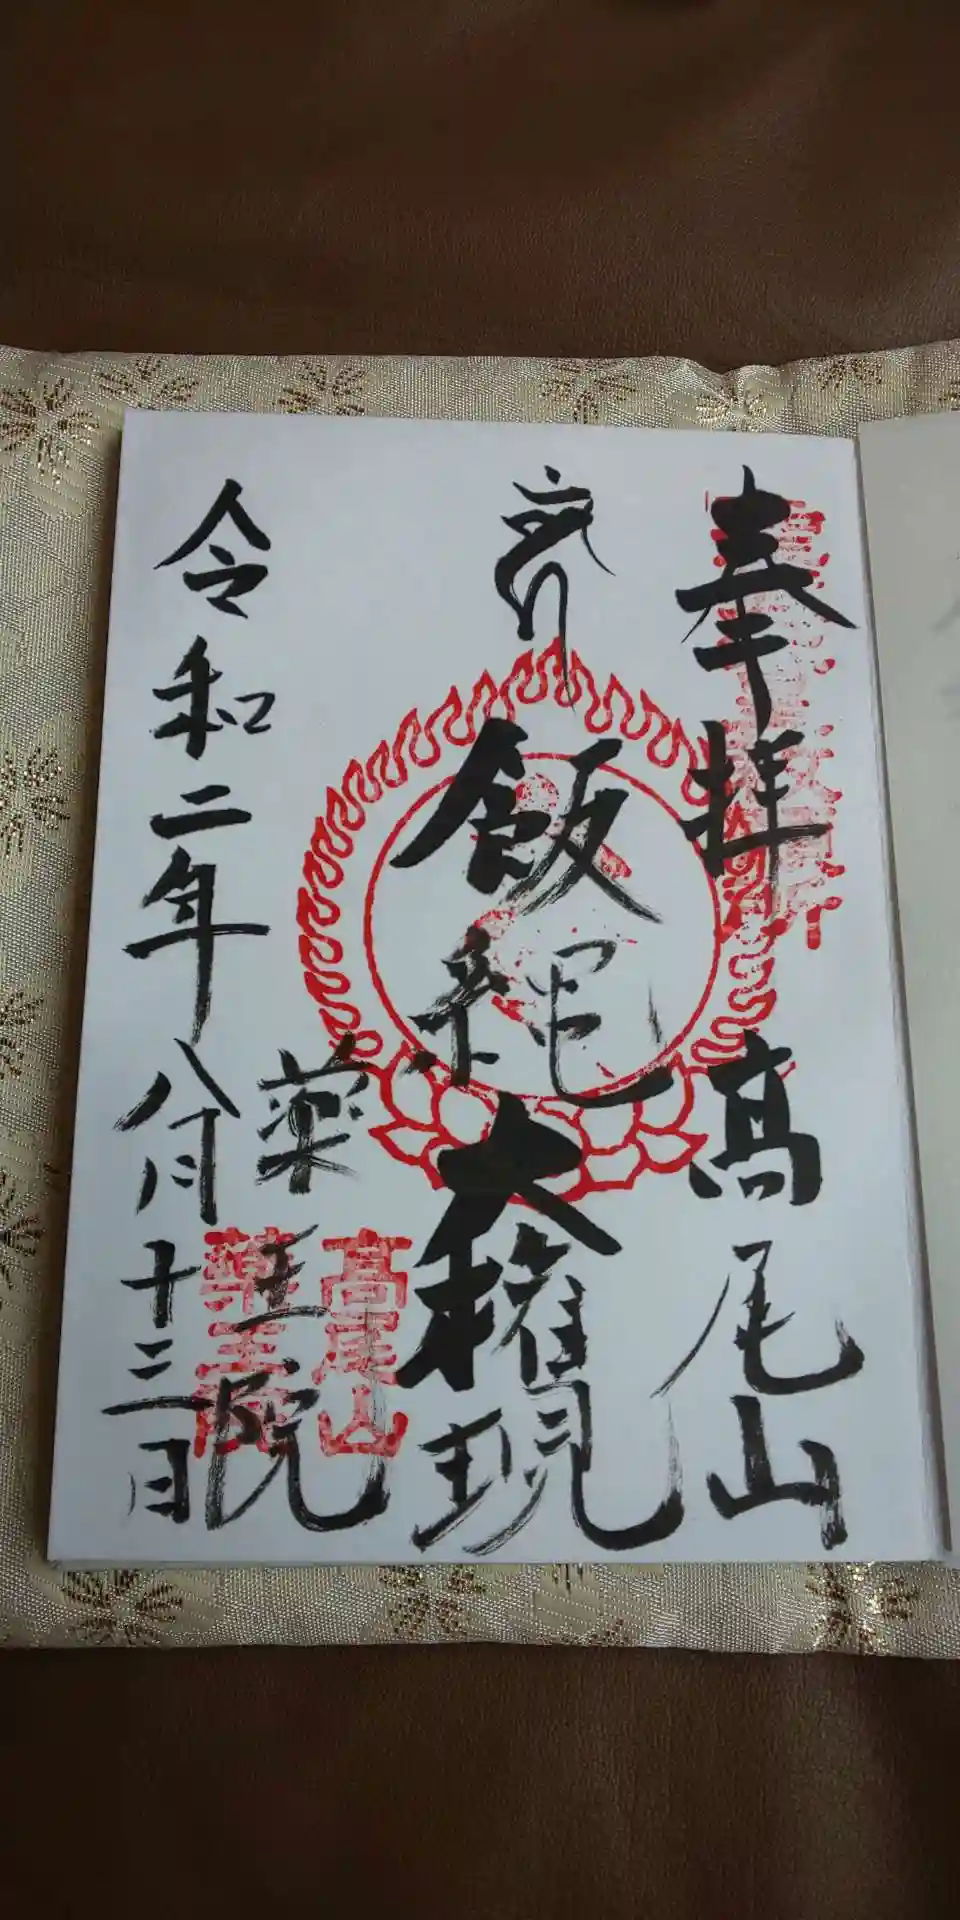 奉拝 高尾山
飯縄大権現
薬王院
高尾山
薬王院
令和二年八月十三日